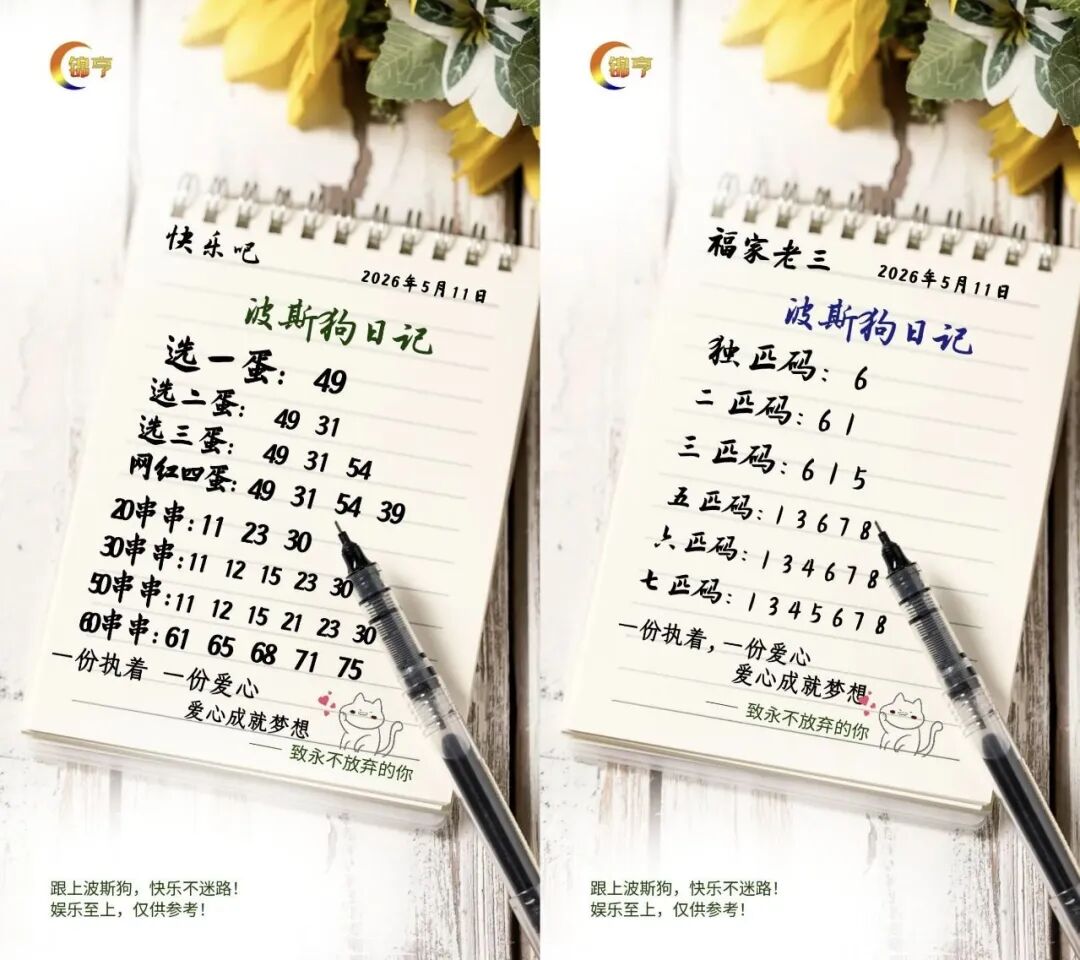 锦亨
快乐吧
2026年5月11日
波斯狗日记
选一蛋：49
选二蛋：49 31
选三蛋：49 31 54
网红四蛋：49 31 54 39
20串串：11 23 30
30串串：11 12 15 23 30
50串串：11 12 15 21 23 30
60串串：61 65 68 71 75
一份执着 一份爱心
爱心成就梦想
—— 致永不放弃的你
跟上波斯狗，快乐不迷路！
娱乐至上，仅供参考！
锦亨
福家老三
2026年5月11日
波斯狗日记
独匹码：6
二匹码：6 1
三匹码：6 1 5
五匹码：1 3 6 7 8
六匹码：1 3 4 6 7 8
七匹码：1 3 4 5 6 7 8
一份执着，一份爱心
爱心成就梦想
—— 致永不放弃的你
跟上波斯狗，快乐不迷路！
娱乐至上，仅供参考！